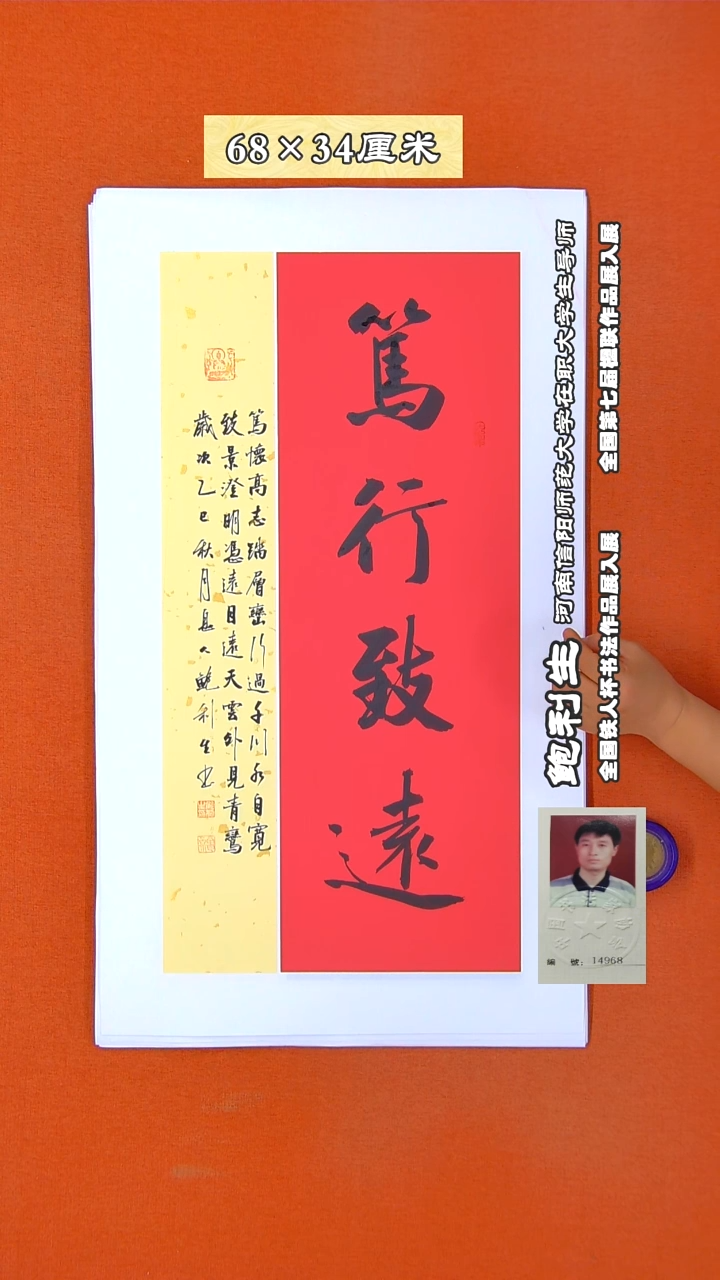 68×34厘米
篤行致遠
篤懷高志踏層巒行過千川水自寬
致景澄明憑遠目遠天雲外見青鸞
歲次乙巳秋月息人鮑利生書
鲍利生 河南信阳师范大学在职大学生导师
全国第七届楹联作品展入展
全国铁人杯书法作品展入展
編 號：14968